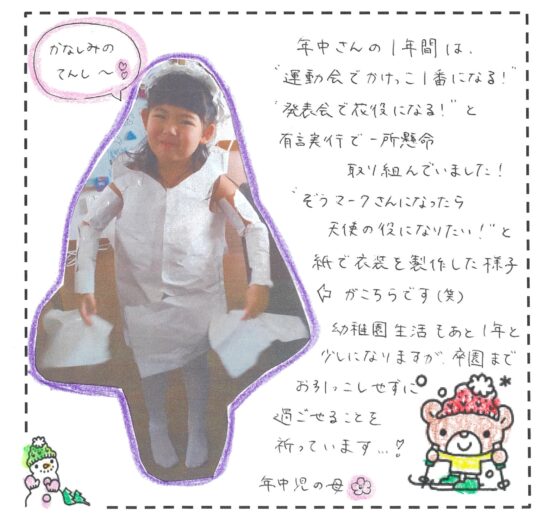 かなしみの
てんし〜
年中さんの1年間は、
"運動会でかけっこ1番になる!"
"発表会で衣役になる!"と
有言実行で一所懸命
取り組んでいました!
"ぞうマークさんになったら
天使の役になりたい!"と
紙で衣装を製作した様子
がこちらです(笑)
幼稚園生活もあと1年と
少しになりますが、卒園まで
お引っこしせずに
過ごせることを
祈っています…!
年中児の母